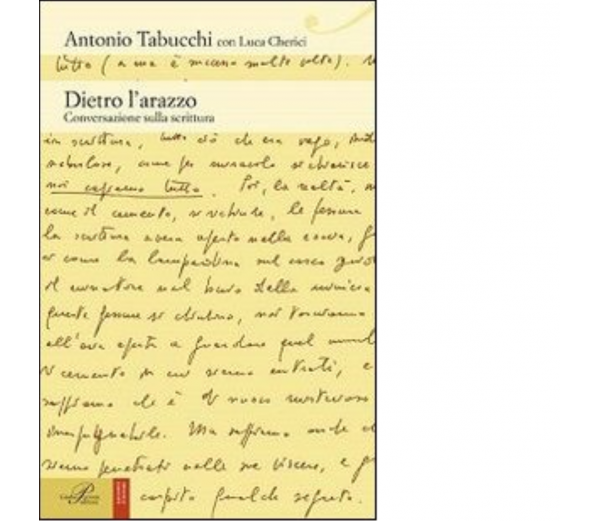 Antonio Tabucchi con Luca Cherici
tutto (a me è successo molte volte).
Dietro l'arazzo
Conversazione sulla scrittura
in scrittura, tutto ciò che era vago,
nebuloso, come per miracolo si chiarisce
noi capiamo tutto. Poi, la realtà,
come il cemento, si richiude, le fessure
la scrittura aveva aperto nella roccia,
e come la lampadina sul casco
il minatore nel buio della miniera
queste fessure si chiudono, noi torniamo
all'aria aperta a guardare quel
cemento in cui siamo entrati, e
sappiamo che è di nuovo misterioso
inespugnabile. Ma sappiamo anche
siamo penetrati nelle sue viscere, e
carpito qualche segreto.